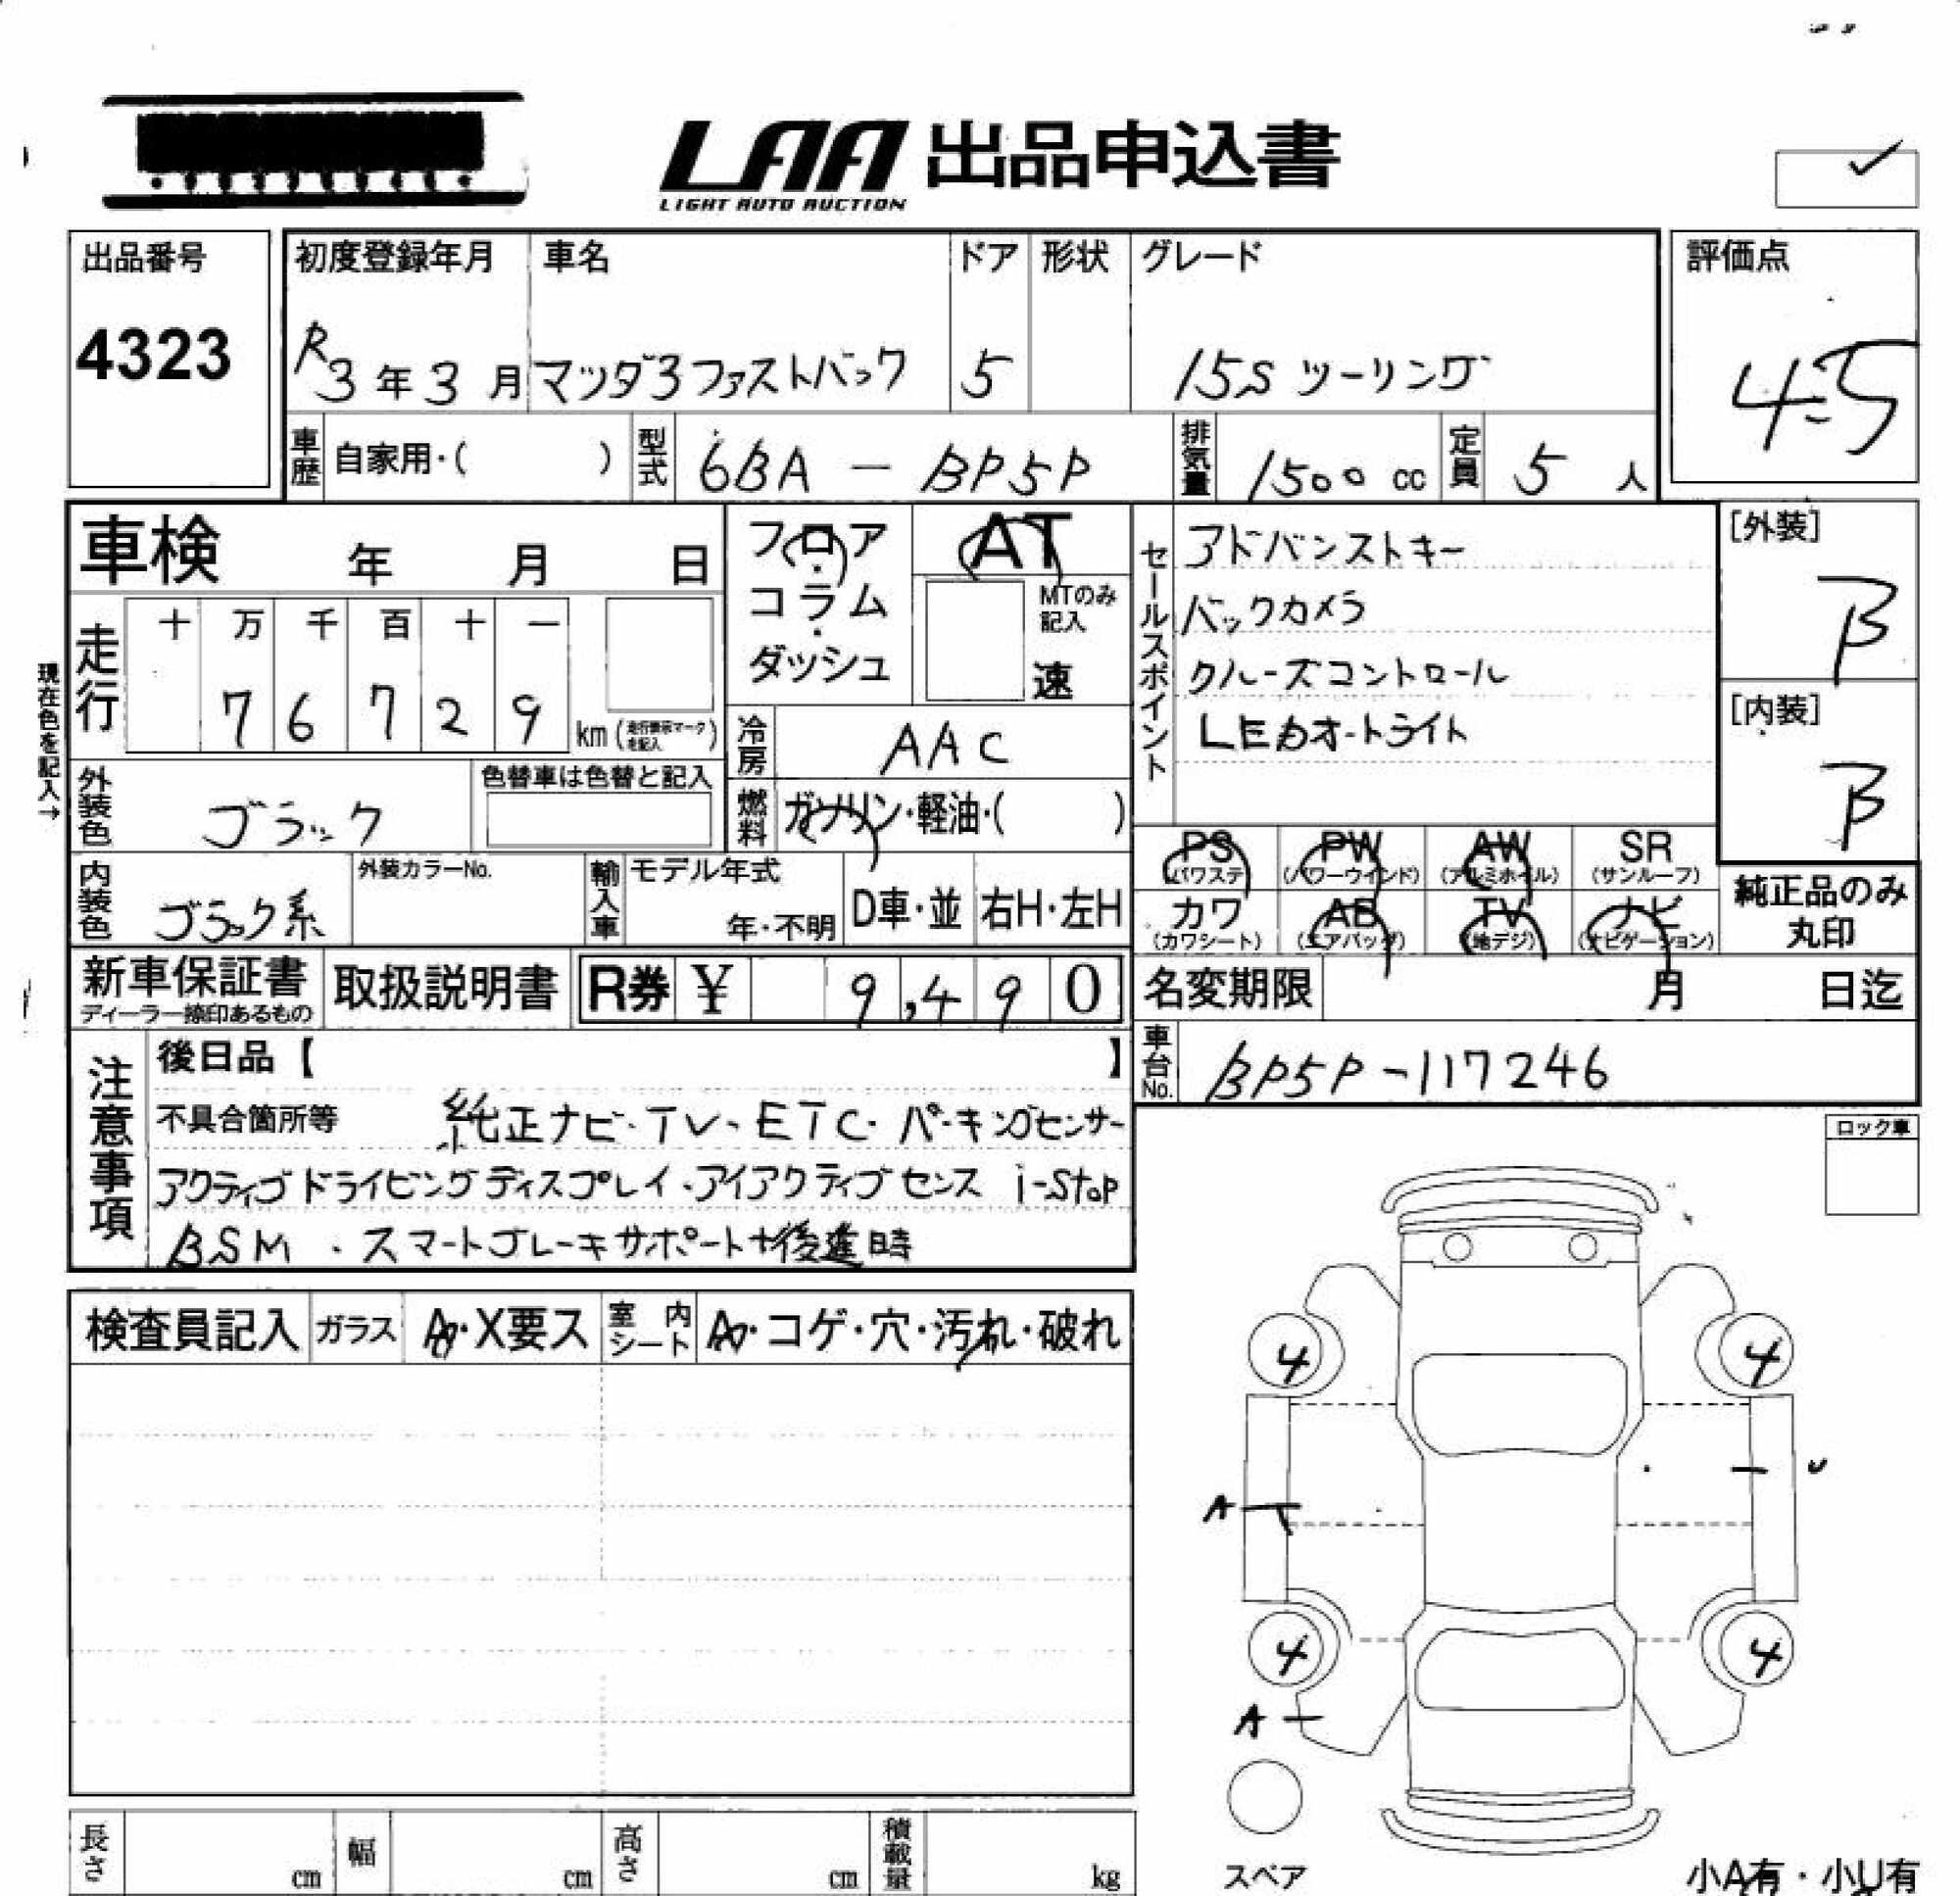 LAA 出品申込書
LIGHT AUTO AUCTION
出品番号
4323
初度登録年月 車名 ドア 形状 グレード
R3年3月 マツダ3ファストバック 5 15S ツーリング
評価点
4.5
車歴 自家用・( ) 型式 6BA - BP5P 排気量 1500 cc 定員 5 人
車検 年 月 日
フロア・コラム・ダッシュ
AT
MTのみ記入
速
セールスポイント
アドバンストキー
バックカメラ
クルーズコントロール
LEDオートライト
[外装]
B
[内装]
B
現在色を記入→
走行 十 万 千 百 十 一
7 6 7 2 9 km (走行表示マークを記入)
冷房 AAC
外装色 ブラック 色替車は色替と記入
燃料 ガソリン・軽油・( )
PS (パワステ) PW (パワーウインド) AW (アルミホイル) SR (サンルーフ)
カワ (カワシート) AB (エアバッグ) TV (地デジ) ナビ (ナビゲーション)
純正品のみ丸印
内装色 ブラック系 外装カラーNo. 輸入車 モデル年式 年・不明 D車・並 右H・左H
新車保証書 ディーラー捺印あるもの 取扱説明書 R券 ¥ 9,490
名変期限 月 日迄
車台No. BP5P-117246
注意事項
後日品【 】
不具合箇所等 純正ナビ・TV・ETC・パーキングセンサー
アクティブドライビングディスプレイ・アイアクティブセンス i-stop
BSM・スマートブレーキサポート+後進時
ロック車
検査員記入 ガラス A・X要ス 室内シート A・コゲ・穴・汚れ・破れ
4 4
U
A
4 4
A
スペア
小A有・小U有
長さ cm 幅 cm 高さ cm 積載量 kg